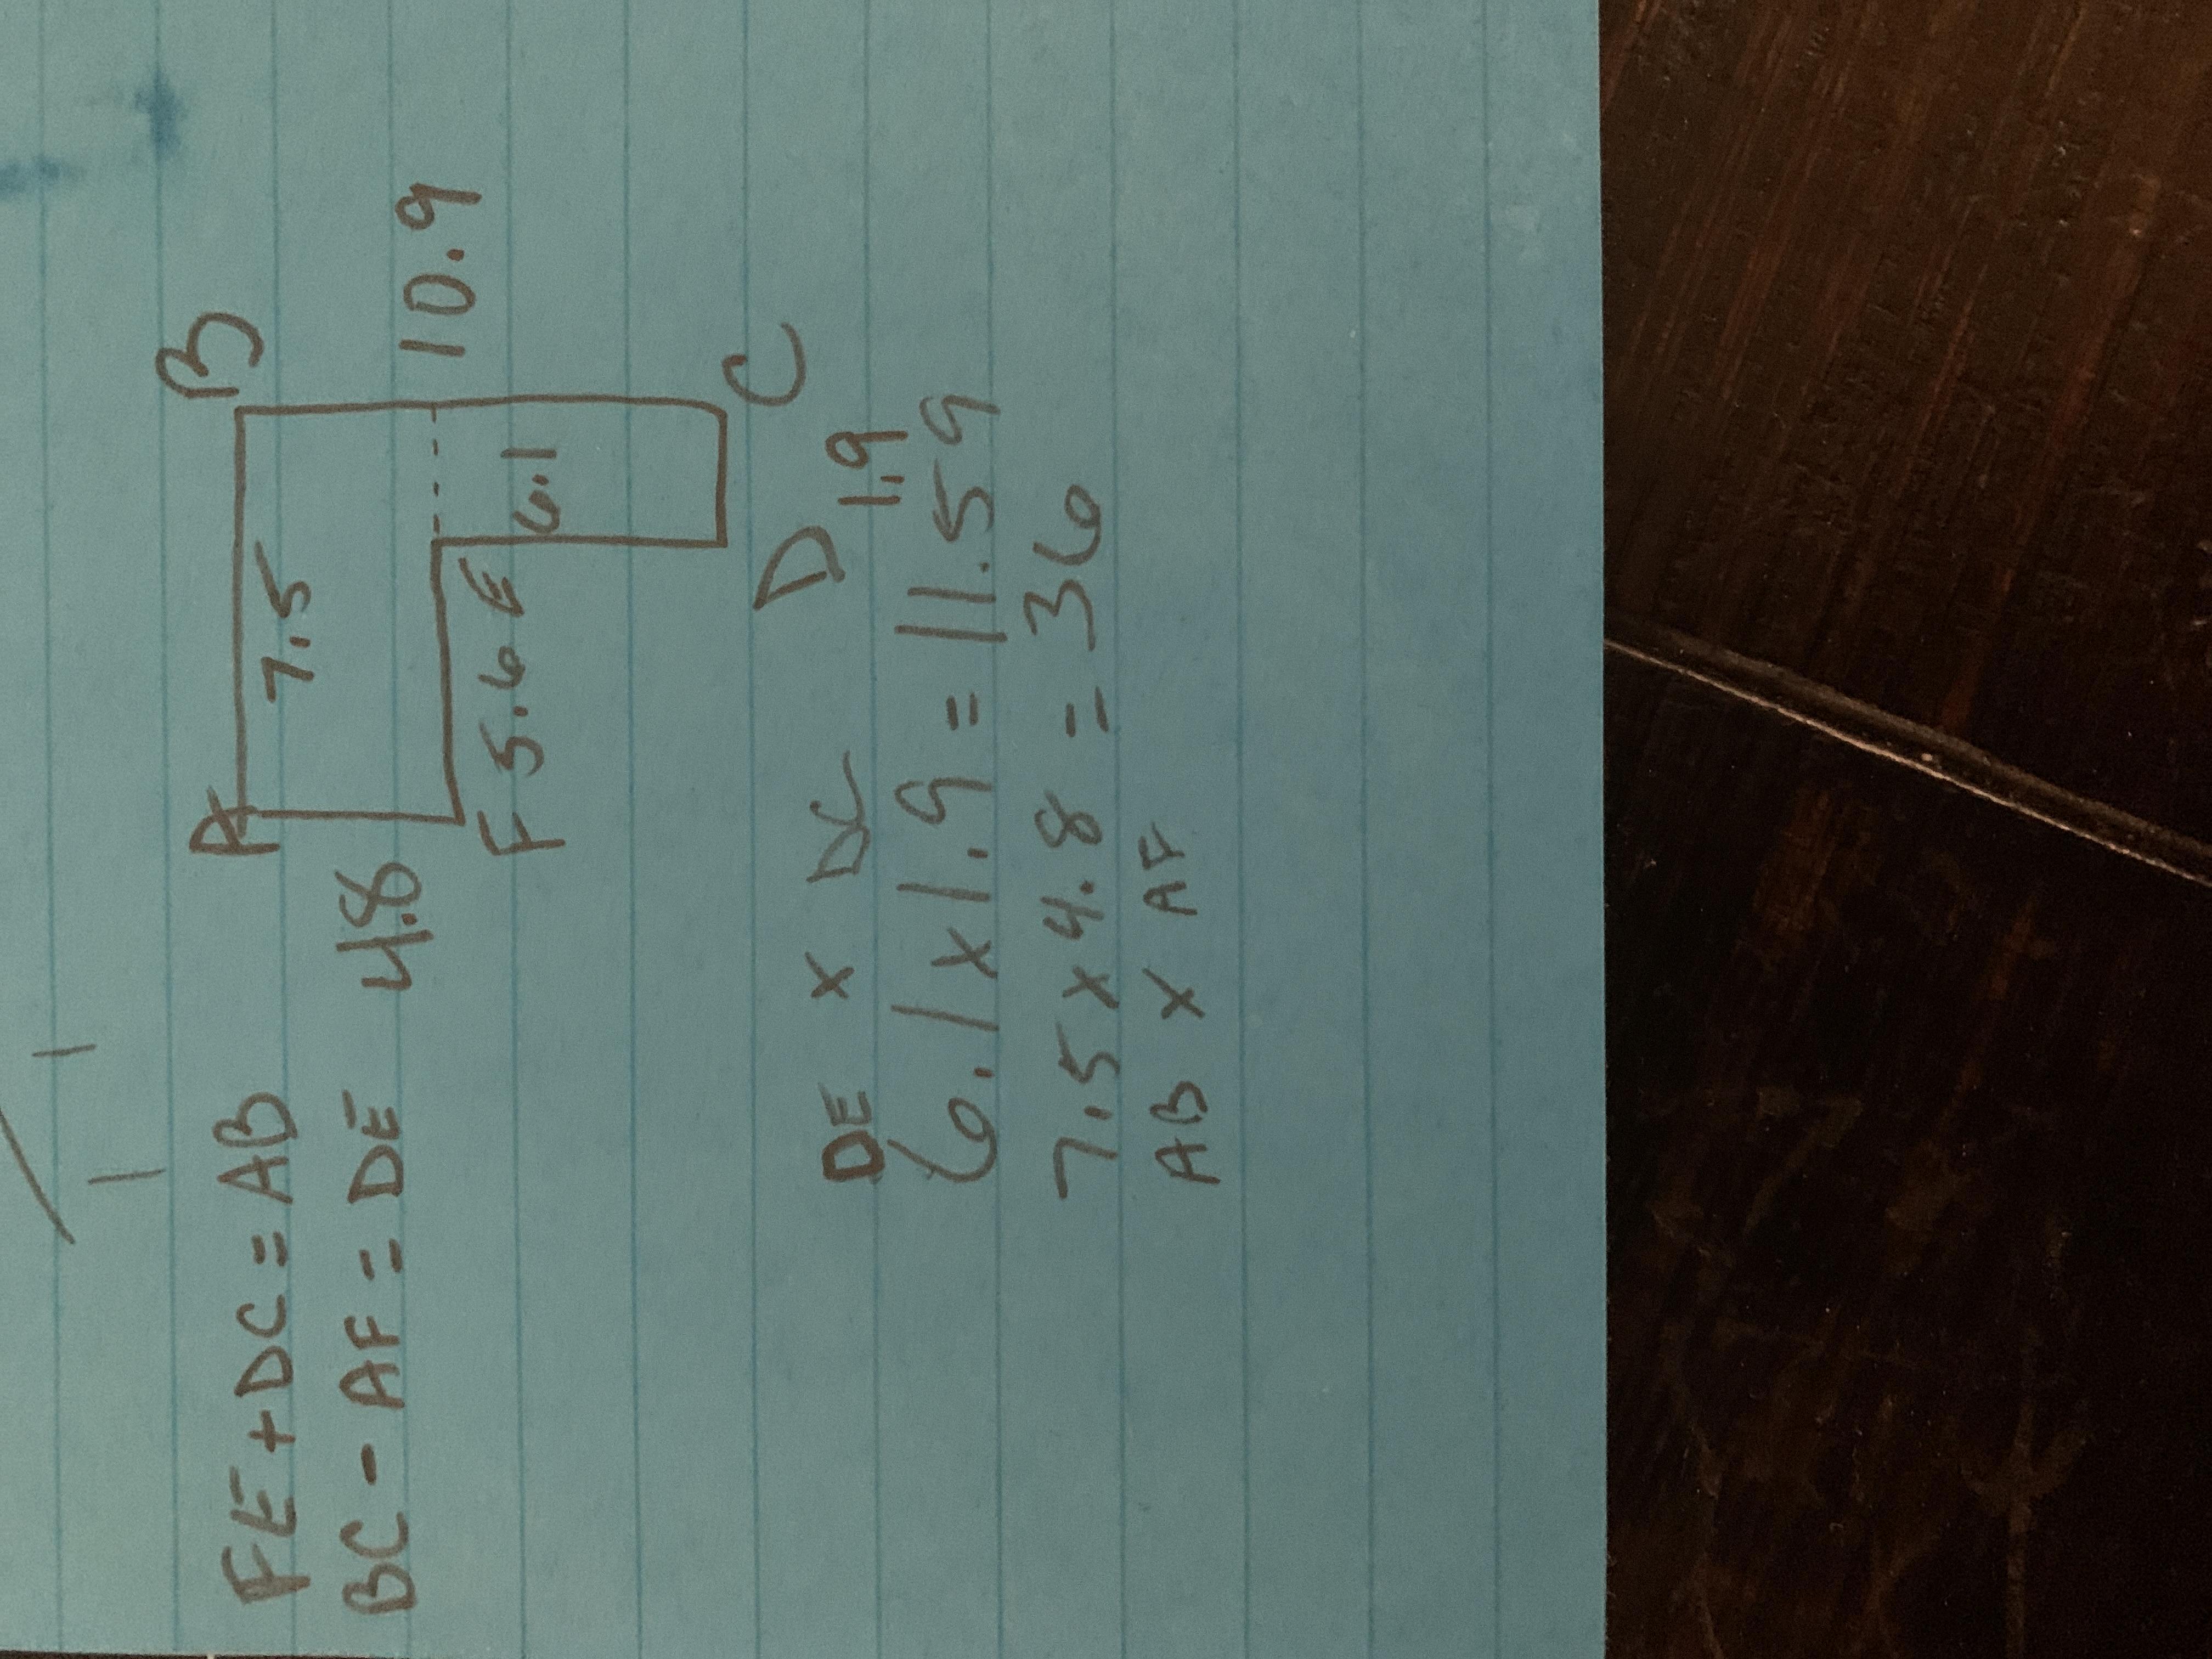 FE + DC = AB
BC - AF = DE
A
B
7.5
4.8
10.9
F
5.6
E
6.1
C
D
1.9
DE x DC
6.1 x 1.9 = 11.59
7.5 x 4.8 = 36
AB x AF